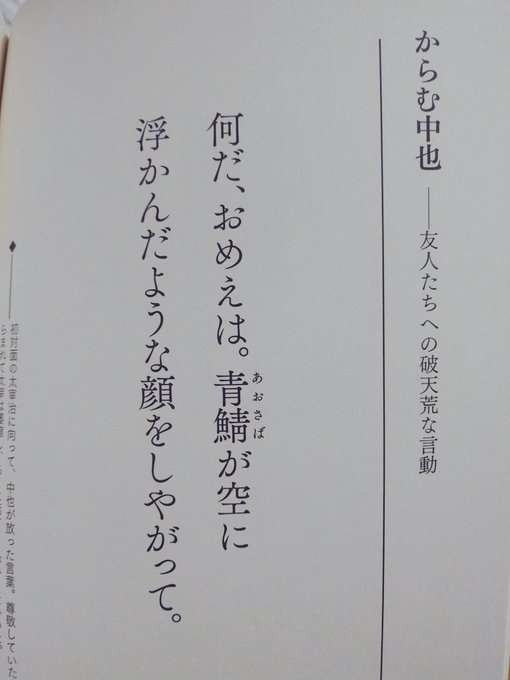 からむ中也――友人たちへの破天荒な言動
何だ、おめえは。青鯖が空に
あおさば
浮かんだような顔をしやがって。
◆――初対面の太宰治に向って、中也が放った言葉。尊敬していた